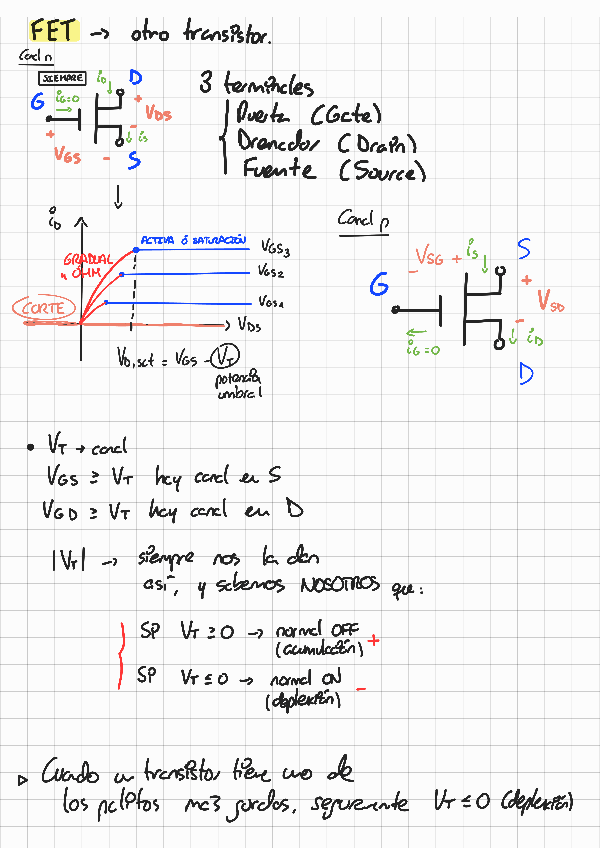 FET → otro transistor.
Canal n
SIEMPRE
iG=0
iD
D
G
+
VDS
-
iS
+
VGS
-
S
3 terminales
Puerta (Gate)
Drenador (Drain)
Fuente (Source)
iD
ACTIVA Ó SATURACIÓN
GRADUAL
ÓHM
VGS3
VGS2
VGS1
CORTE
VDS
VD,sat = VGS - VT
potencia
umbral
Canal p
- VSG +
iS
S
G
+
VSD
-
iG=0
iD
D
• VT → canal
VGS ≥ VT hay canal en S
VGD ≥ VT hay canal en D
|VT| → siempre nos la dan
así, y sabemos NOSOTROS que:
SP VT ≥ 0 → normal OFF
(acumulación) +
SP VT ≤ 0 → normal ON
(deplexión) -
▷ Cuando un transistor tiene uno de
los palitos más gordos, seguramente VT ≤ 0 (deplexión)